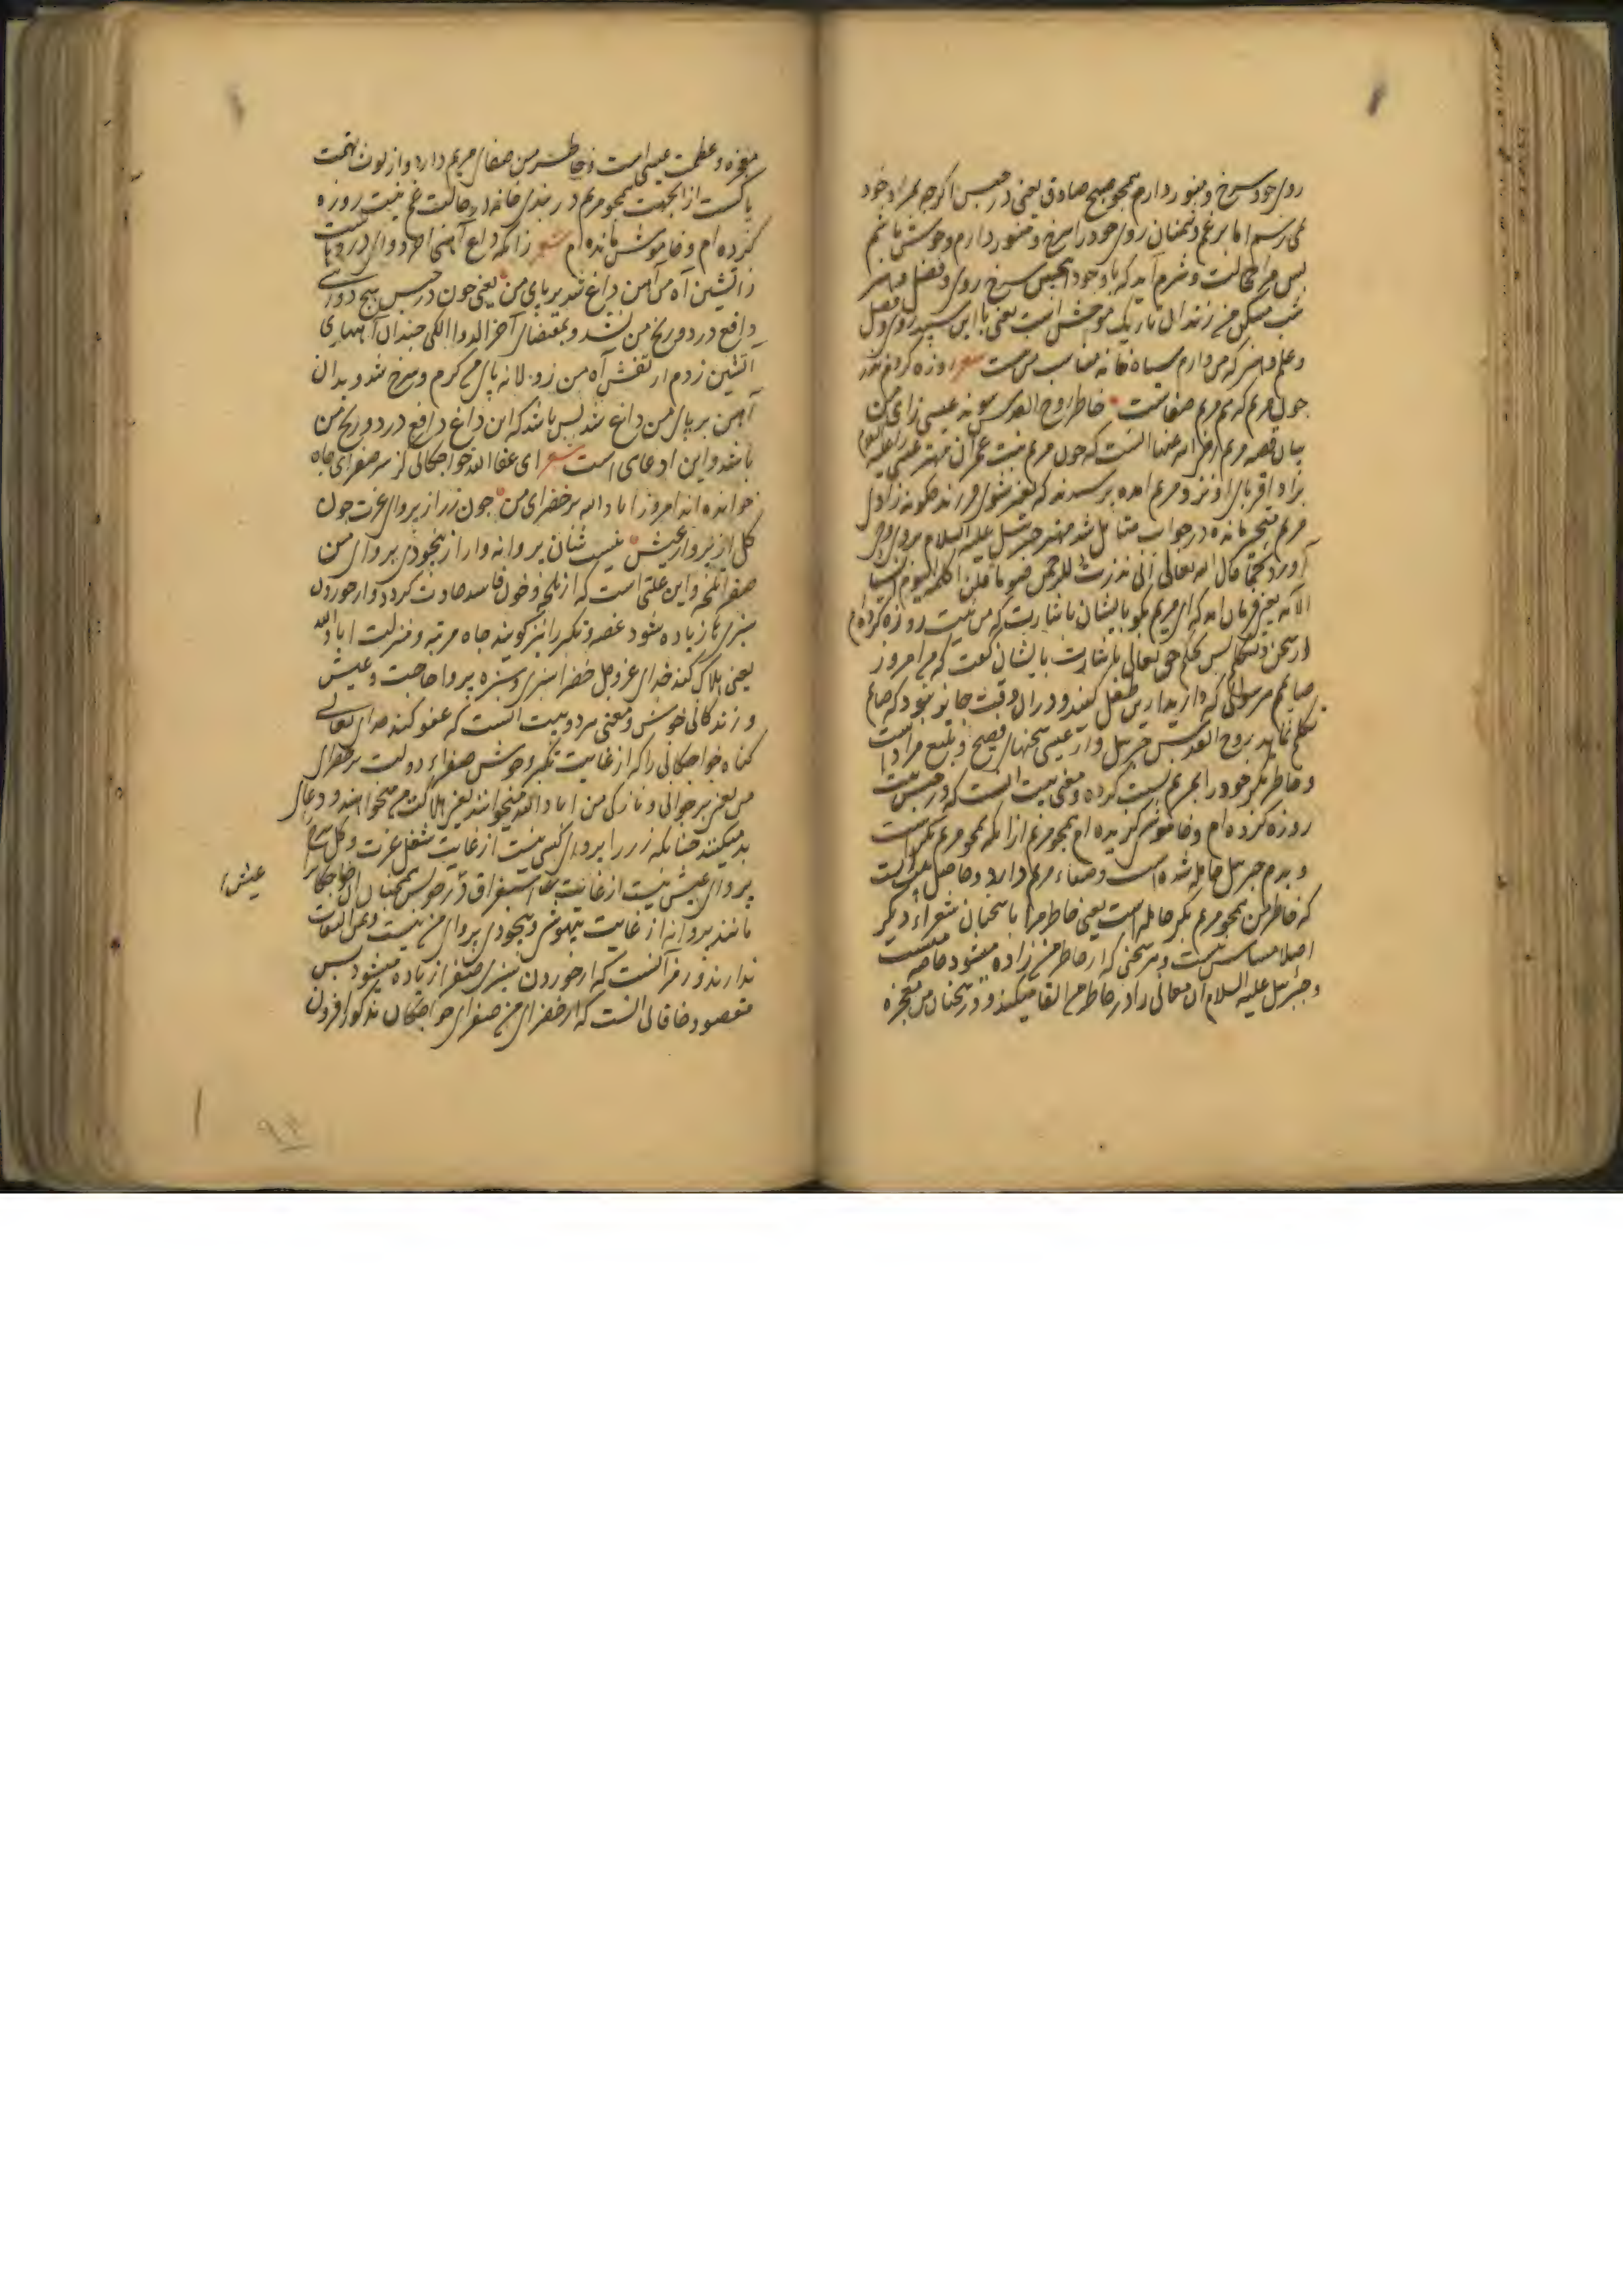 روی خود سرخ و منور دارم همچو صبح صادق یعنی در حبس اگرچه بمراد خود
نمی رسم اما برغم دشمنان روی خود را سرخ و منور دارم و خوش باشم
پس مرا خجالت و شرم آید که با وجود سرخ روی و فضل و هنر
شب مسکن من زندان تاریک موحش است یعنی با این سپید روی و فضل
و علم و هنر که من دارم سیاه خانه مناسب من نیست شعر روزه کردم نذر
چون مریم که هم مریم صفاست خاطر روح القدس پیوند عیسی زای من
بیان قصه مریم رضی الله عنها آنست که چون مریم بنت عمران مهتر عیسی علیه السلام
بزاد اقربای او نزد مریم آمده پرسیدند که بغیر شوی فرزند چگونه زادی
مریم متحیر مانده در جواب متامل شد مهتر جبرئیل علیه السلام بروی وحی
آورد کما قال الله تعالی انی نذرت للرحمن صوما فلن اکلم الیوم انسیا
الآیه یعنی فرمان آمد که ای مریم بگو بایشان باشارت که من نیت روزه کرده ام
از سخن و تکلم پس بحکم حق تعالی باشارت بایشان گفت که من امروز
صایمم
تکلم نماید روح القدس جبرئیل و از عیسی سخنهای فصیح و بلیغ مراد است
و خاطر بکر خود را بمریم نسبت کرده و معنی بیت آنست که در حبس نیت
روزه کرده ام و خاموشی گزیده ام همچو مریم از آنکه همچو مریم بکر است
و بدم جبرئیل حامله شده است و صفاء مریم دارد و حاصل
که خاطر من همچو مریم بکر حامله است یعنی خاطر مرا با سخنان شعراء دیگر
اصلا مساس نیست و هر سخنی که از خاطر من زاده میشود خاصه
و جبرئیل علیه السلام آن معانی را در خاطر من القا میکند و در سخنان من معجزه
معجزه و عظمت عیسی است و خاطر من صفای مریم دارد و از لوث تهمت
پاکست از آنجهت همچو مریم در بندی خانه در حالت غم نیت روزه
کرده ام و خاموش مانده ام شعر زانکه داغ آهنین آخر دوای دردهاست
ز آتشین آه من آهن داغ شد بر پای من یعنی چون در حبس هیچ دوائی
دافع درد و رنج من نشد و بمقتضای آخر الدواء الکی چندان آههای
آتشین زدم از تفش آه من زولانه پای من گرم و سرخ شد و بدان
آهن بر پای من داغ شد پس باشد که این داغ دافع درد و رنج من
باشد و این ادعای است شعر ای عفا الله خواجگانی کز سر صفرای جاه
خوانده اند امروز اباد الله بر خضرای من چون زر از پروای عزت چون
گل از پروای عیش نیست شان پروانه وار از بیخودی پروای من
صفرا تلخه و این علتی است که از تلخه و خون فاسد حادث گردد و از خوردن
سبزیها زیاده شود غصه و تکبر را نیز گویند جاه مرتبه و منزلت اباد الله
یعنی هلاک کند خدای عز و جل خضرا سبزی و سبزه پروا حاجت و عیش
و زندگانی خوش و معنی هر دو بیت آنست که عفو کند خدای تعالی
گناه خواجگانی را که از غایت تکبر و جوش صفراء دولت بر خضرای
من یعنی بر جوانی و نازکی من اباد الله میخوانند یعنی هلاکت من میخواهند و دعای
بد میکنند چنانکه زر را پروای کسی نیست از غایت شغل عزت و گل
پروای عیش نیست از غایت استغراق و در جوش همچنان آن خواجگانرا
مانند پروانه از غایت بیهوشی و بیخودی پروای من نیست و بمن التفات
ندارند و رمز آنست که از خوردن سبزی صفرا زیاده میشود پس
مقصود خاقانی آنست که از خضرای من صفرای خواجگان مذکور افزون
عیش را